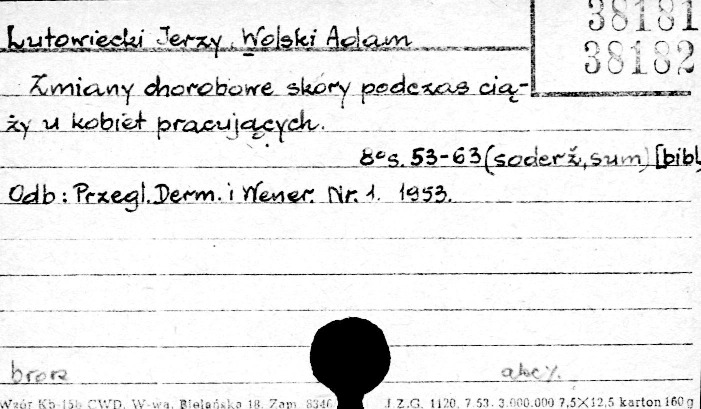 38181
38182
Lutowiecki Jerzy, Wolski Adam
Zmiany chorobowe skóry podczas cią-
ży u kobiet pracujących.
8° s. 53-63 (soderž, sum) [bibl
Odb: Przegl. Derm. i Wener. Nr. 1. 1953.
brosz
Wzór Kb-15b CWD, W-wa, Bielańska 18. Zam. 8346 J.Z.G. 1120. 7.53. 3.000.000 7,5×12,5 karton 160 g